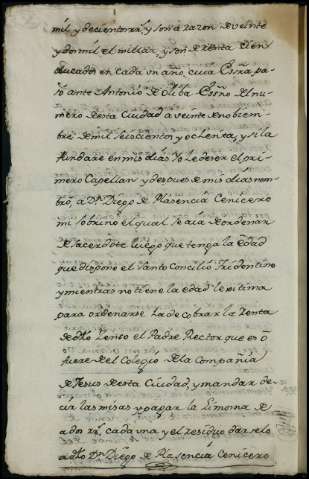 mil y decientos rs y son a razon de veinte
y dos mil el millar, y son de Renta cien
ducados en cada un año cuia Essra pa-
so ante Antonio de Oliba Essno del nu-
mero desta Ciudad a veinte de nobiem-
bre de mil seiscientos y ochenta, y si la
fundare en mis dias yo e de ser el pri-
mero Capellan y despues de mis dias nom-
bro, a Dn Diego de Plasencia Cenicero
mi sobrino el qual se a de ordenar
de sacerdote luego que tenga la edad
que dispone el santo Concilio tridentino
y mientras no tiene la edad lexitima
para ordenarse ha de cobrar la Renta
de dho Zenso el Padre Rector que es o
fuere del Colegio de la Compañia
de Jesus desta Ciudad, y mandar de-
cir las misas y pagar la limosna de
a dos rs cada una y el residuo darselo
a dho Dn Diego de Plasencia Cenicero